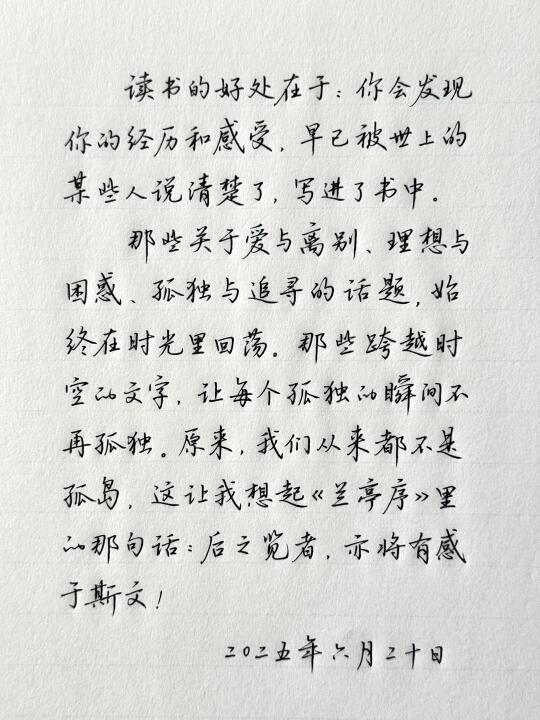 读书的好处在于：你会发现
你的经历和感受，早已被世上的
某些人说清楚了，写进了书中。
那些关于爱与离别、理想与
困惑、孤独与追寻的话题，始
终在时光里回荡。那些跨越时
空的文字，让每个孤独的瞬间不
再孤独。原来，我们从来都不是
孤岛，这让我想起《兰亭序》里
的那句话：后之览者，亦将有感
于斯文！
二〇二五年六月二十日